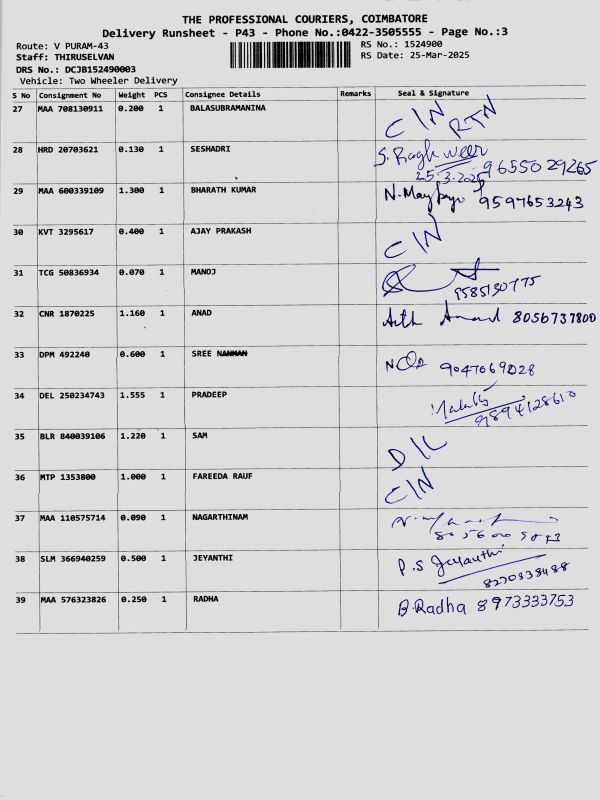 THE PROFESSIONAL COURIERS, COIMBATORE
Delivery Runsheet - P43 - Phone No.:0422-3505555 - Page No.:3
Route: V PURAM-43 RS No.: 1524900
Staff: THIRUSELVAN RS Date: 25-Mar-2025
DRS No.: DCJB152490003
Vehicle: Two Wheeler Delivery
S No Consignment No Weight PCS Consignee Details Remarks Seal & Signature
27 MAA 708130911 0.200 1 BALASUBRAMANINA C/N RTN
28 HRD 20703621 0.130 1 SESHADRI S. Raghuveer 9655029265
25.3.2025
29 MAA 600339109 1.300 1 BHARATH KUMAR 9597653243
30 KVT 3295617 0.400 1 AJAY PRAKASH C/N
31 TCG 50836934 0.070 1 MANOJ
9585130775
32 CNR 1870225 1.160 1 ANAD Anand 8056737800
33 DPM 492240 0.600 1 SREE 9047069028
34 DEL 250234743 1.555 1 PRADEEP
9894128610
35 BLR 840039106 1.220 1 SAM D/L
36 MTP 1353800 1.000 1 FAREEDA RAUF C/N
37 MAA 110575714 0.090 1 NAGARTHINAM
38 SLM 366940259 0.500 1 JEYANTHI P.S Jeyanthi
39 MAA 576323826 0.250 1 RADHA B.Radha 8973333753